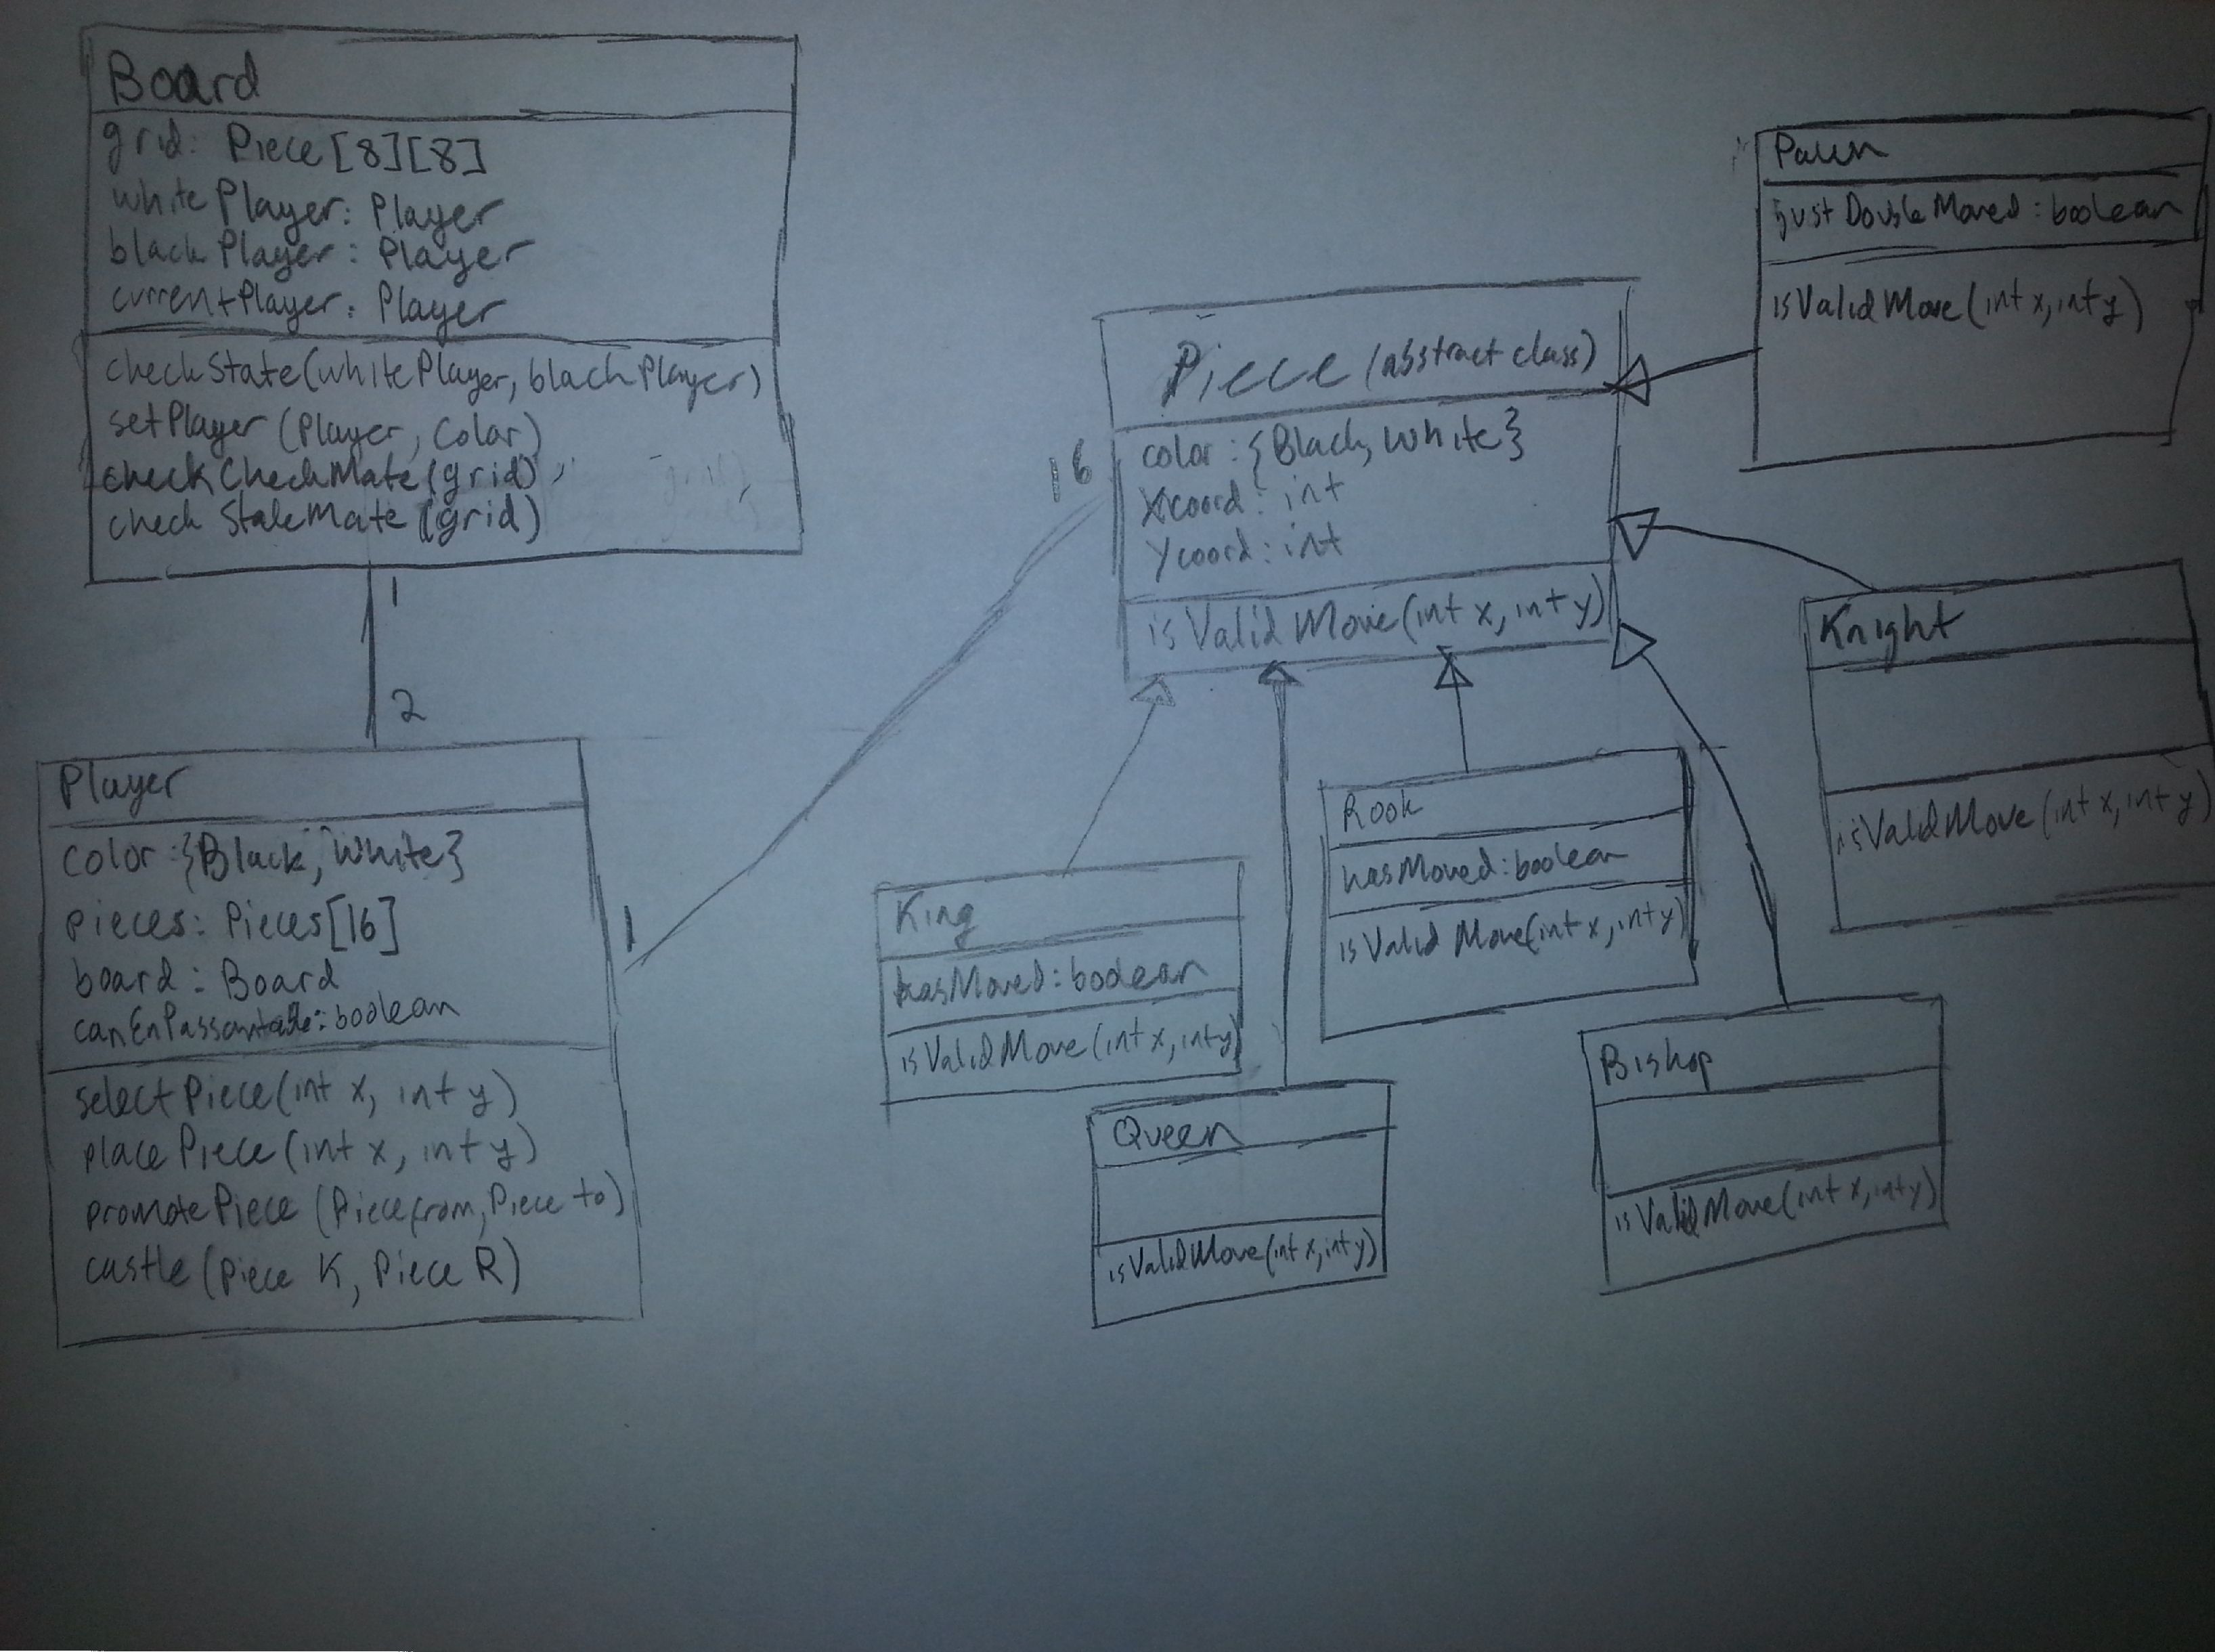 Board
grid: Piece[8][8]
whitePlayer: Player
blackPlayer: Player
currentPlayer: Player
checkState(whitePlayer, blackPlayer)
setPlayer(Player, Color)
checkCheckMate(grid)
checkStaleMate(grid)
1
2
Player
color:{Black, White}
pieces: Pieces[16]
board: Board
boolean
selectPiece(int x, int y)
placePiece(int x, int y)
promotePiece(Piece from, Piece to)
castle(Piece K, Piece R)
1
16
Piece (abstract class)
color:{Black, White}
Xcoord: int
Ycoord: int
isValidMove(int x, int y)
Pawn
justDoubleMoved: boolean
isValidMove(int x, int y)
Knight
isValidMove(int x, int y)
Rook
hasMoved: boolean
isValidMove(int x, int y)
King
hasMoved: boolean
isValidMove(int x, int y)
Queen
isValidMove(int x, int y)
Bishop
isValidMove(int x, int y)